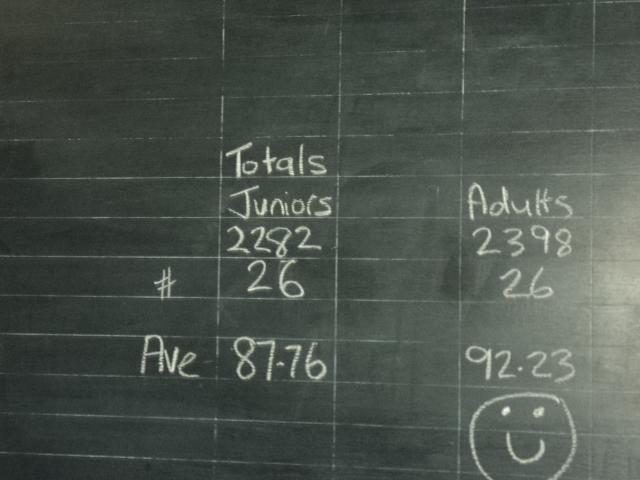 Totals
Juniors Adults
2282 2398
# 26 26
Ave 87.76 92.23